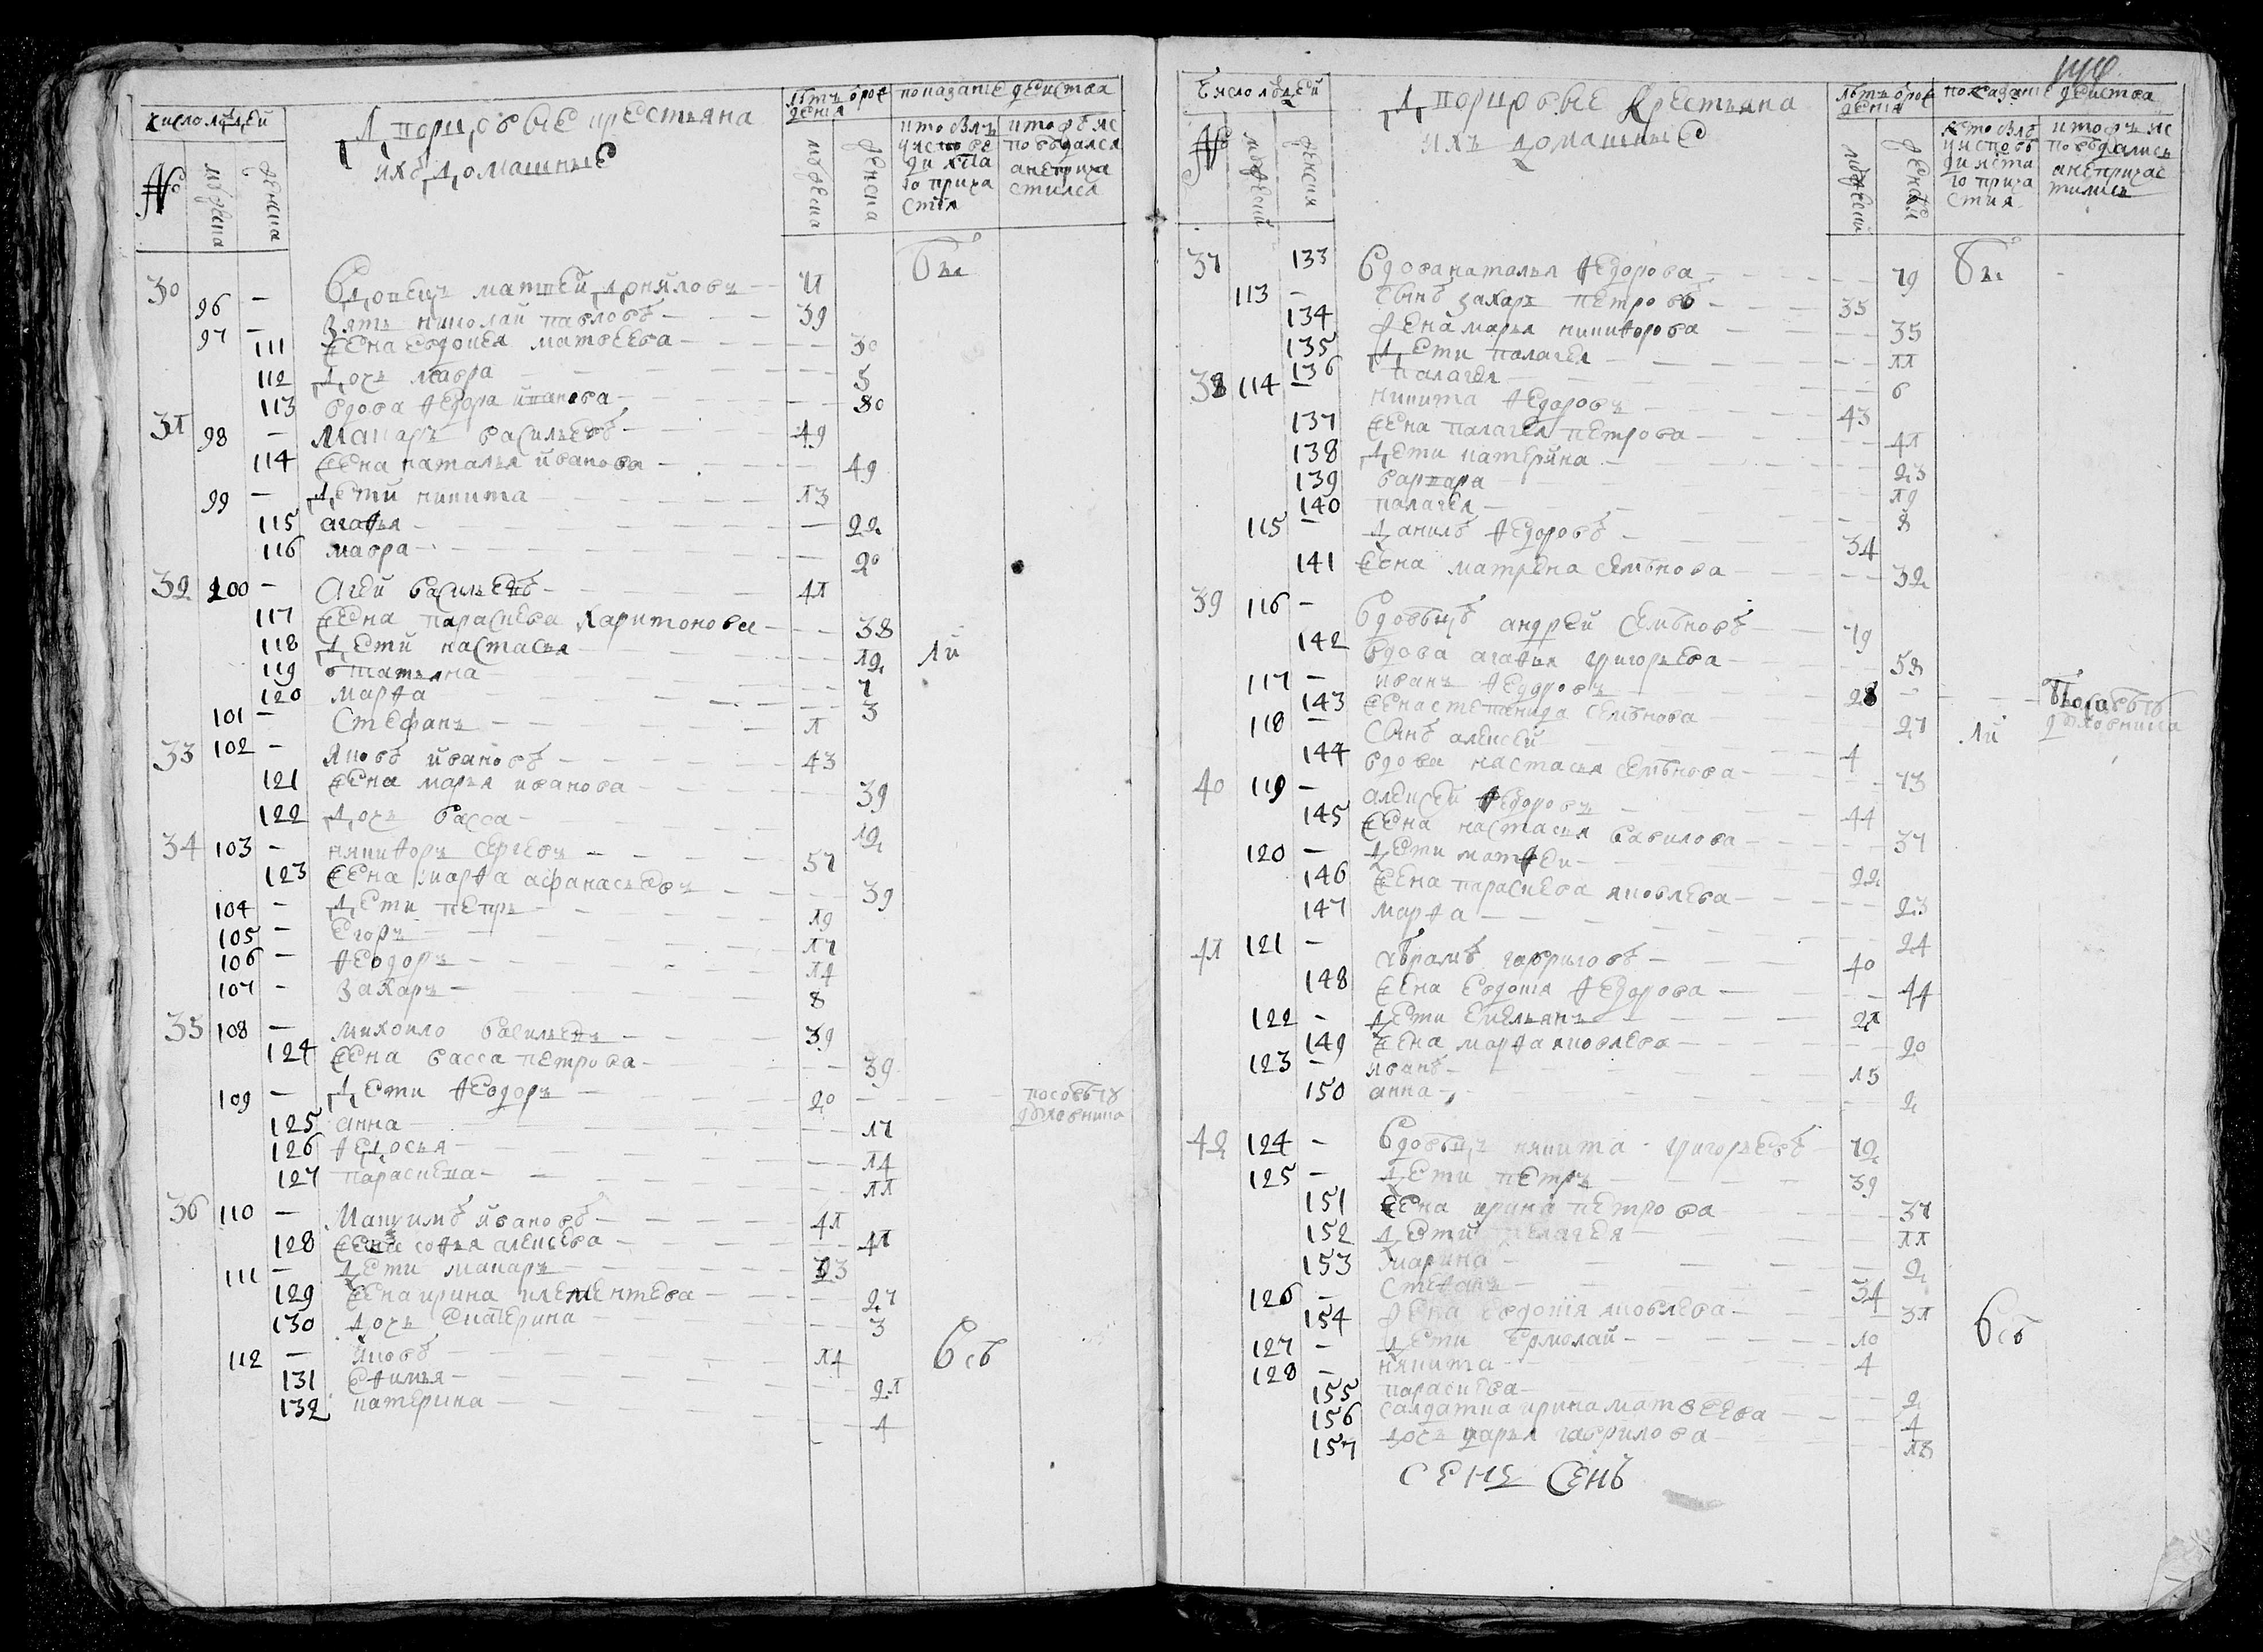 число людей
№
мужеска
женска
Дворцовые крестьяна
ихъ домашные
лѣтъ о рож
дения
мужеска
женска
показание действа
кто былъ
у исповѣ
ди
и прича
стия
исповѣдался
а не прича
стился
30 96 — Вдовецъ матвей даниловъ — 71 Бы
97 — зять николай павловъ — 39
111 жена евдокея матвеева — 30
112 дочь мавра — 5
113 вдова федора иванова — 80
31 98 — Макаръ васильевъ — 49
114 жена наталья иванова — 49
99 — дети никита — 13
115 агафья — 22
116 мавра — 20
32 100 — Агей васильевъ — 41
117 жена параскева харитонова — 38
118 дети настасья — 12 ли
119 татьяна — 7
120 марфа — 3
101 — Стефанъ — 1
33 102 — яковъ ивановъ — 43
121 жена марья иванова — 39
122 дочь васса — 12
34 103 — никифоръ сергеевъ — 57
123 жена марфа афанасьева — 39
104 — дети петръ — 19
105 — Егоръ — 17
106 — Феодоръ — 14
107 — захаръ — 8
35 108 — михайло васильевъ — 39
124 жена васса петрова — 39
109 — дети Феодоръ — 20 — по совѣту
духовника
125 анна — 17
126 Федосья — 14
127 параскева — 11
36 110 — Максимъ ивановъ — 41
128 жена софья алексева — 41
111 — дети макаръ — 23
129 жена ирина клементева — 27
130 дочь екатерина — 3
112 — яковъ — 14 Всѣ
131 Ефимья — 21
132 катерина — 4
Число людей
№
мужеский
женский
Дворцовые крестьяна
ихъ домашные
лѣтъ о рож
дения
мужеский
женский
показание действа
кто былъ
у исповѣ
ди
и прича
стия
исповѣдались
а не причас
тились
37 133 Вдова наталья Федорова — 79 Бы
113 — сынъ захаръ петровъ — 35
134 жена марья никифорова — 35
135 дети палагея — 11
136 палагея — 6
38 114 — никита Федоровъ — 43
137 жена палагея петрова — 41
138 дети катерина — 23
139 варвара — 19
140 палагея — 8
115 — данилъ Федоровъ — 34
141 жена матрена семѣнова — 32
39 116 — Вдовецъ андрей семѣновъ — 79
142 вдова агафья григорьева — 58
117 — иванъ Федоровъ — 28 — По совѣту
духовника
143 жена степанида семѣнова — 27 ли
118 — сынъ алексей — 4
144 вдова настасья семѣнова — 73
40 119 — алексей Федоровъ — 44
145 жена настасья вавилова — 37
120 — дети матфей — 22
146 жена параскева яковлева — 23
147 марфа — 24
41 121 — авраамъ гавриловъ — 40
148 жена евдокия Федорова — 44
122 — дети емельянъ — 21
149 жена марфа яковлева — 20
123 — иванъ — 15
150 анна — 2
42 124 — Вдовецъ никита григорьевъ — 72
125 — дети петръ — 39
151 жена ирина петрова — 37
152 дети пелагея — 11
153 марина — 2
126 — стефанъ — 34
154 жена евдокия яковлева — 31 Всѣ
127 — дети Ермолай — 10
128 — никита — 4
155 параскева — 2
156 салдатка ирина матвеева — 4
157 дочь дарья гаврилова — 18